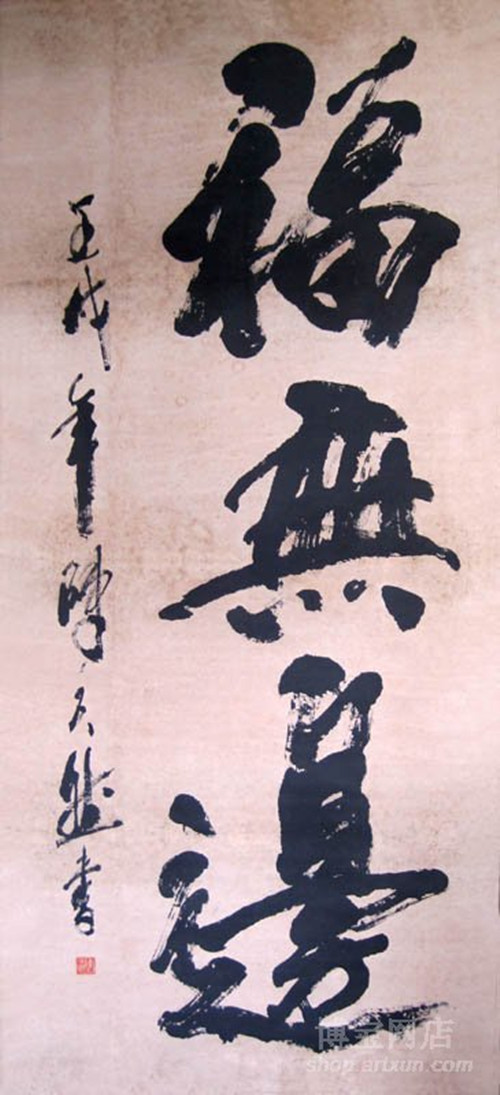 福無邊
壬戌年陳天然書
博宝网店
shop.artxun.com